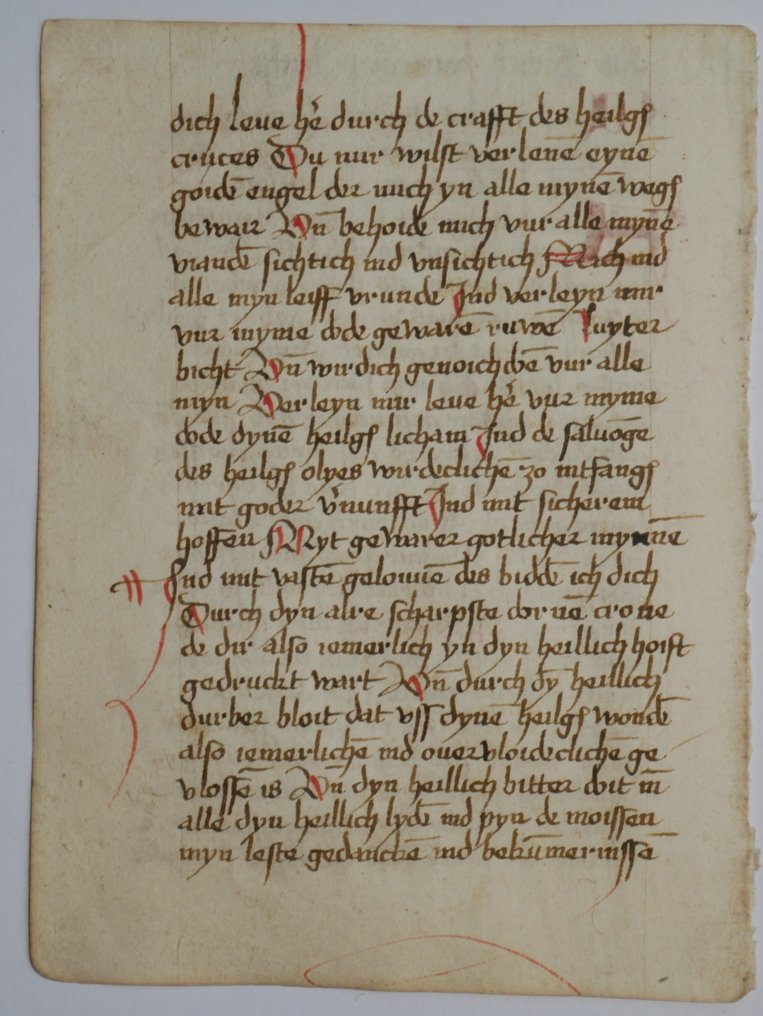 dich leue hē durch de crafft des heilgȩ
cruces Du mir wilst verlenē eynē
goidē engel der mich yn alle mynē wegȩ
bewair Vñ behoide mich vur alle mynē
viandē sichtich ind vnsichtich Mich ind
alle myn leiff vrunde Ind verleyn mir
vur myme dode gewarē ruwē luyter
bicht Vñ wirdich genoich doē vur alle
myn Verleyn mir leue hē vur myme
dode dynē heilgȩ licham Ind de saluōge
des heilgȩ olyes wirdeclichē zo intfangȩ
mit goder v̄nunfft Ind mit sicherem
hoffen Myt gewarer gotlicher mynnē
Ind mit vastē gelouuē des biddē ich dich
Durch dyn alre scharpste dornē crone
de dir also iemerlich yn dyn heillich hoift
gedruckt wart Vñ durch dȳ heillich
durber bloit dat vss dynē heilgȩ wondē
also iemerlichē ind ouervloideclichē ge
vlossē is Vñ dyn heillich bitter doit iñ
alle dyn heillich lydē ind pyn de moissen
myn leste gedanckē ind bekūmernissē